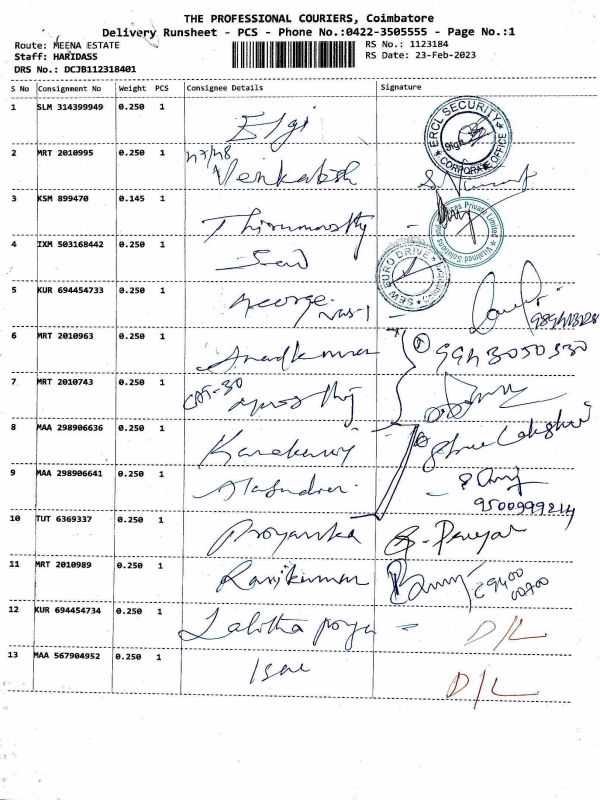 THE PROFESSIONAL COURIERS, Coimbatore
Delivery Runsheet - PCS - Phone No.:0422-3505555 - Page No.:1
Route: MEENA ESTATE
Staff: HARIDASS
DRS No.: DCJB112318401
RS No.: 1123184
RS Date: 23-Feb-2023
S No Consignment No Weight PCS Consignee Details Signature
1 SLM 314399949 0.250 1 Elgi
ERCL SECURITY
CORPORATE OFFICE
2 MRT 2010995 0.250 1 Venkatesh
3 KSM 899470 0.145 1
Private Limited
4 IXM 503168442 0.250 1
SEW EURO DRIVE
5 KUR 694454733 0.250 1 George
6 MRT 2010963 0.250 1 Anandkumar 9943050330
7 MRT 2010743 0.250 1
8 MAA 298906636 0.250 1
9 MAA 298906641 0.250 1
9500999814
10 TUT 6369337 0.250 1 Priyanka
11 MRT 2010989 0.250 1 Ravikumar
12 KUR 694454734 0.250 1 Lalitha priya D/L
13 MAA 567904952 0.250 1 Isac D/L